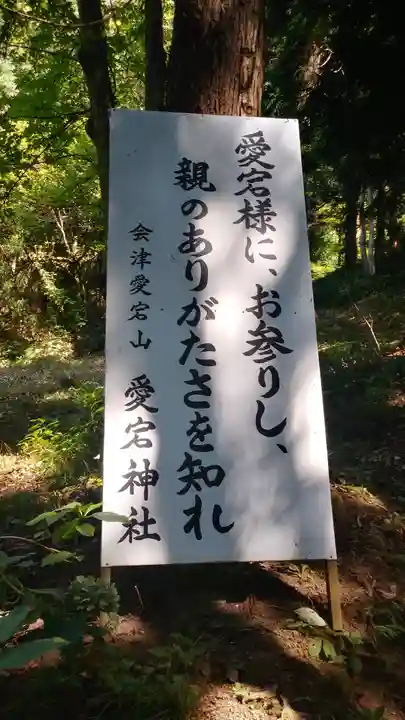 愛宕様に、お参りし、
親のありがたさを知れ
会津愛宕山 愛宕神社